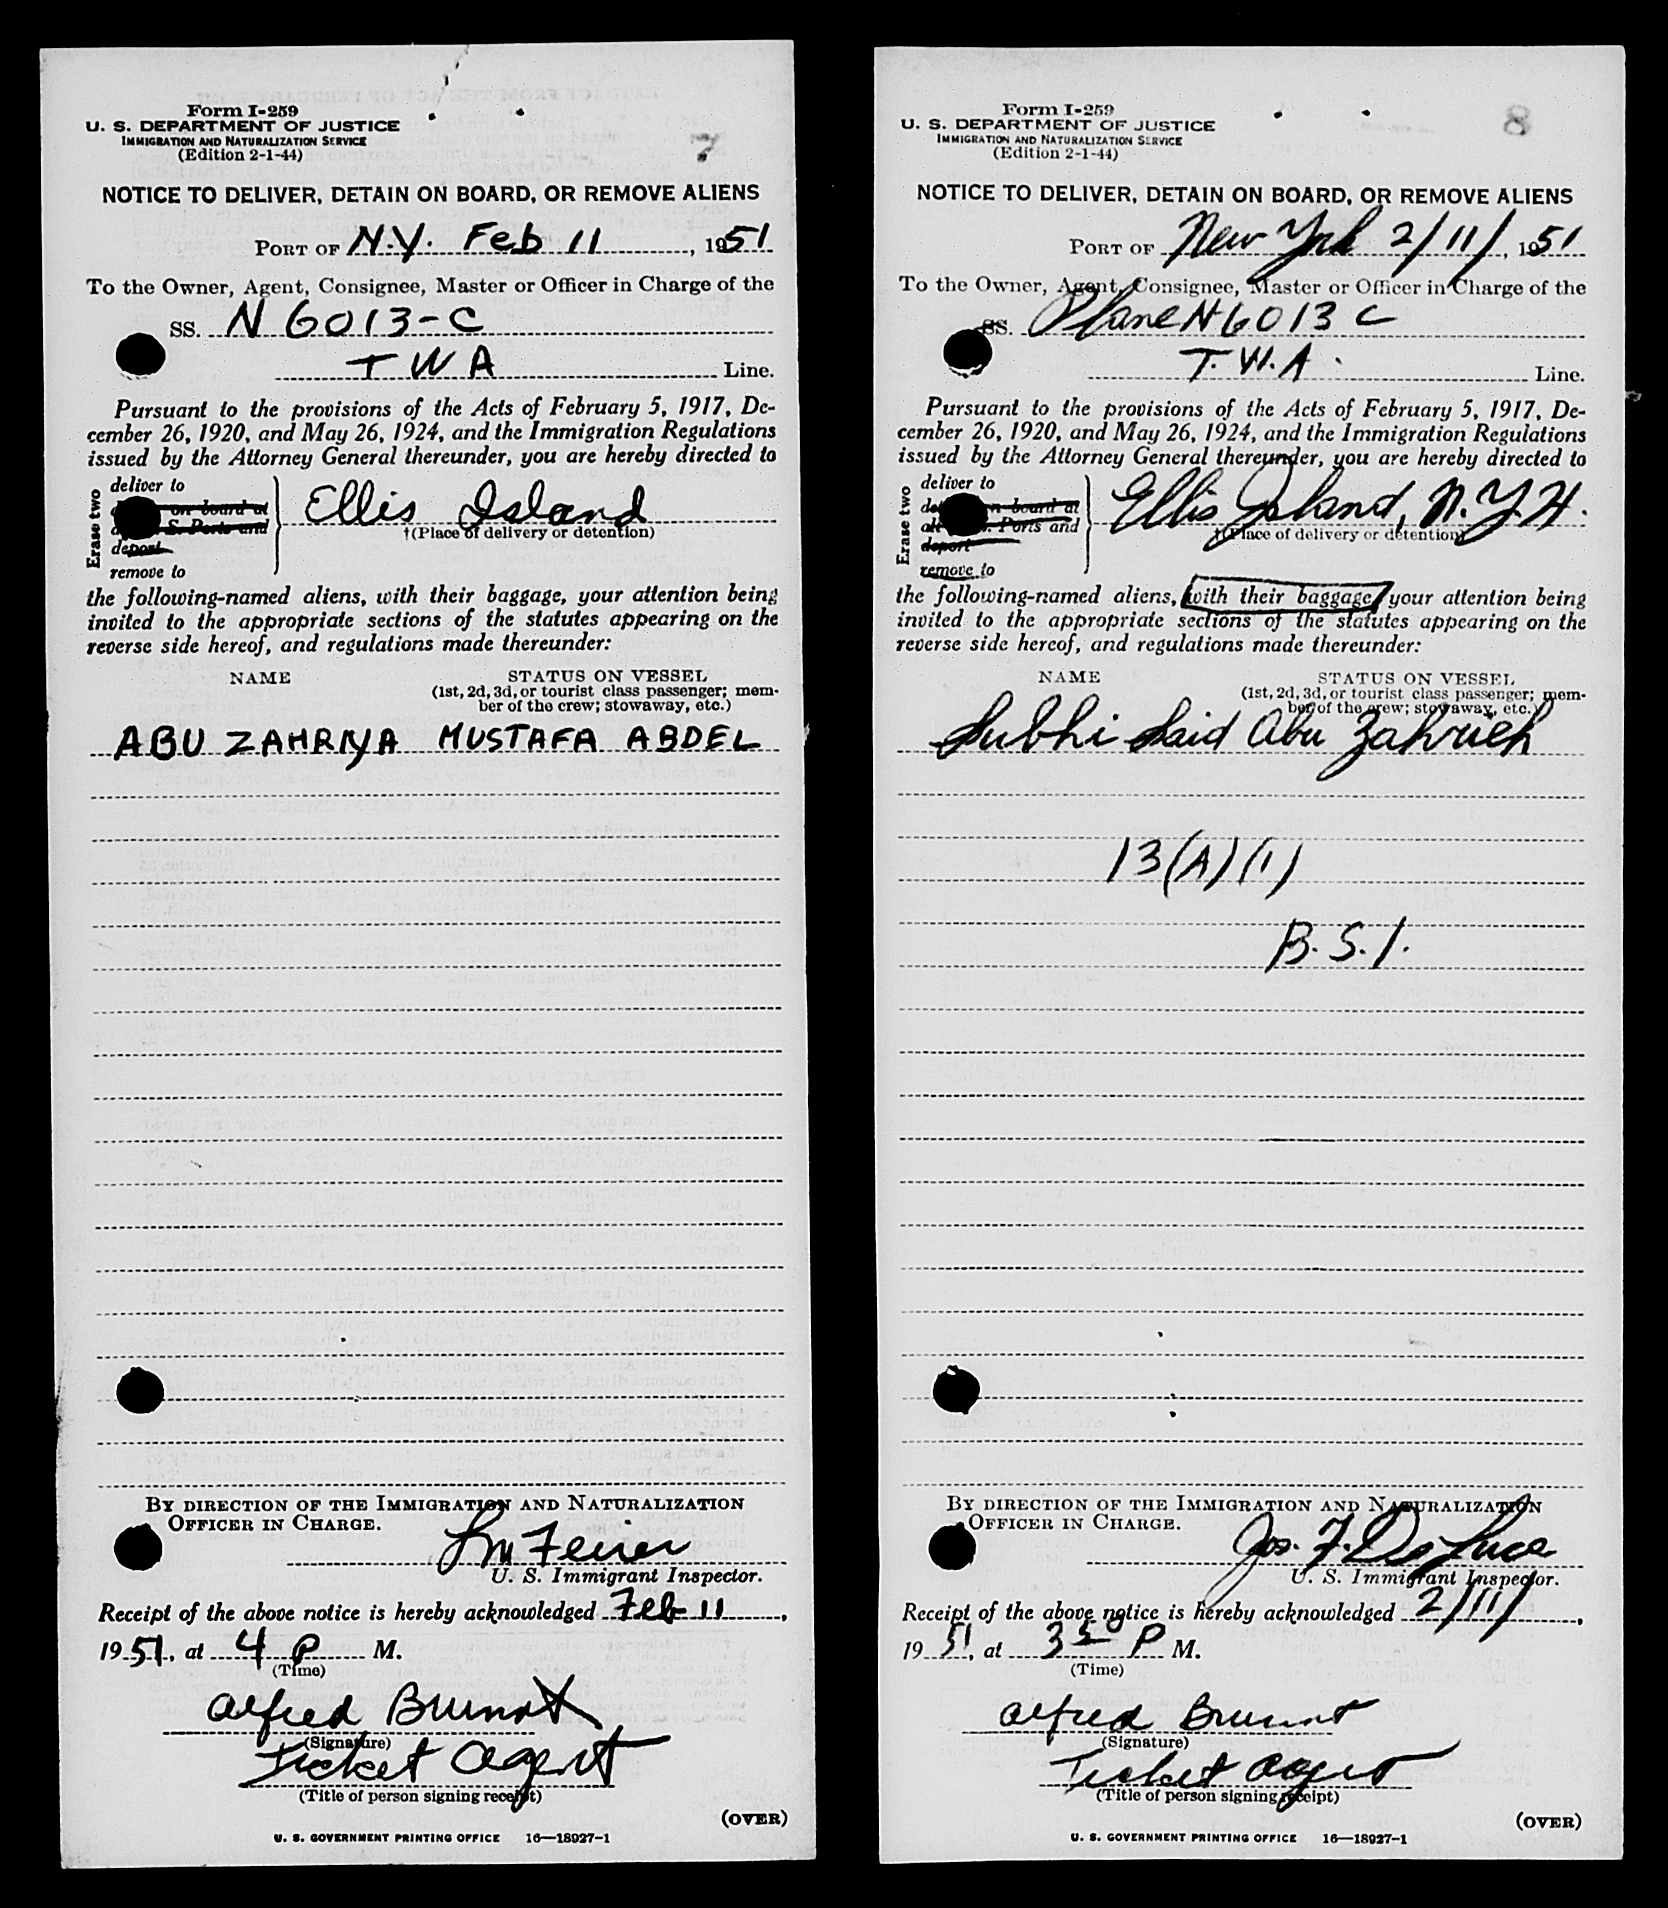 Form I-259
U. S. DEPARTMENT OF JUSTICE
IMMIGRATION AND NATURALIZATION SERVICE
(Edition 2-1-44)
7
NOTICE TO DELIVER, DETAIN ON BOARD, OR REMOVE ALIENS
PORT OF N.Y. Feb 11, 1951
To the Owner, Agent, Consignee, Master or Officer in Charge of the
SS. N 6013-C
TWA Line.
Pursuant to the provisions of the Acts of February 5, 1917, De-
cember 26, 1920, and May 26, 1924, and the Immigration Regulations
issued by the Attorney General thereunder, you are hereby directed to
Erase two
deliver to
on board at
S. Ports and
deport
remove to
Ellis Island
†(Place of delivery or detention)
the following-named aliens, with their baggage, your attention being
invited to the appropriate sections of the statutes appearing on the
reverse side hereof, and regulations made thereunder:
NAME
STATUS ON VESSEL
(1st, 2d, 3d, or tourist class passenger; mem-
ber of the crew; stowaway, etc.)
ABU ZAHRIYA MUSTAFA ABDEL
BY DIRECTION OF THE IMMIGRATION AND NATURALIZATION
OFFICER IN CHARGE.
U. S. Immigrant Inspector.
Receipt of the above notice is hereby acknowledged Feb 11,
1951, at 4 P M.
(Time)
Alfred
(Signature)
Ticket Agent
(Title of person signing receipt)
(OVER)
U. S. GOVERNMENT PRINTING OFFICE 16—18927-1
Form I-259
U. S. DEPARTMENT OF JUSTICE
IMMIGRATION AND NATURALIZATION SERVICE
(Edition 2-1-44)
8
NOTICE TO DELIVER, DETAIN ON BOARD, OR REMOVE ALIENS
PORT OF New York 2/11/, 1951
To the Owner, Agent, Consignee, Master or Officer in Charge of the
SS. Plane N6013C
T.W.A. Line.
Pursuant to the provisions of the Acts of February 5, 1917, De-
cember 26, 1920, and May 26, 1924, and the Immigration Regulations
issued by the Attorney General thereunder, you are hereby directed to
Erase two
deliver to
on board at
all Ports and
deport
remove to
Ellis Island, N.Y.H.
†(Place of delivery or detention)
the following-named aliens, with their baggage, your attention being
invited to the appropriate sections of the statutes appearing on the
reverse side hereof, and regulations made thereunder:
NAME
STATUS ON VESSEL
(1st, 2d, 3d, or tourist class passenger; mem-
ber of the crew; stowaway, etc.)
Subhi Said Abu Zahrieh
13(A)(1)
B.S.I.
BY DIRECTION OF THE IMMIGRATION AND NATURALIZATION
OFFICER IN CHARGE.
Jos. F. De Luca
U. S. Immigrant Inspector.
Receipt of the above notice is hereby acknowledged 2/11/,
1951, at 35 P M.
(Time)
Alfred
(Signature)
Ticket Agent
(Title of person signing receipt)
(OVER)
U. S. GOVERNMENT PRINTING OFFICE 16—18927-1